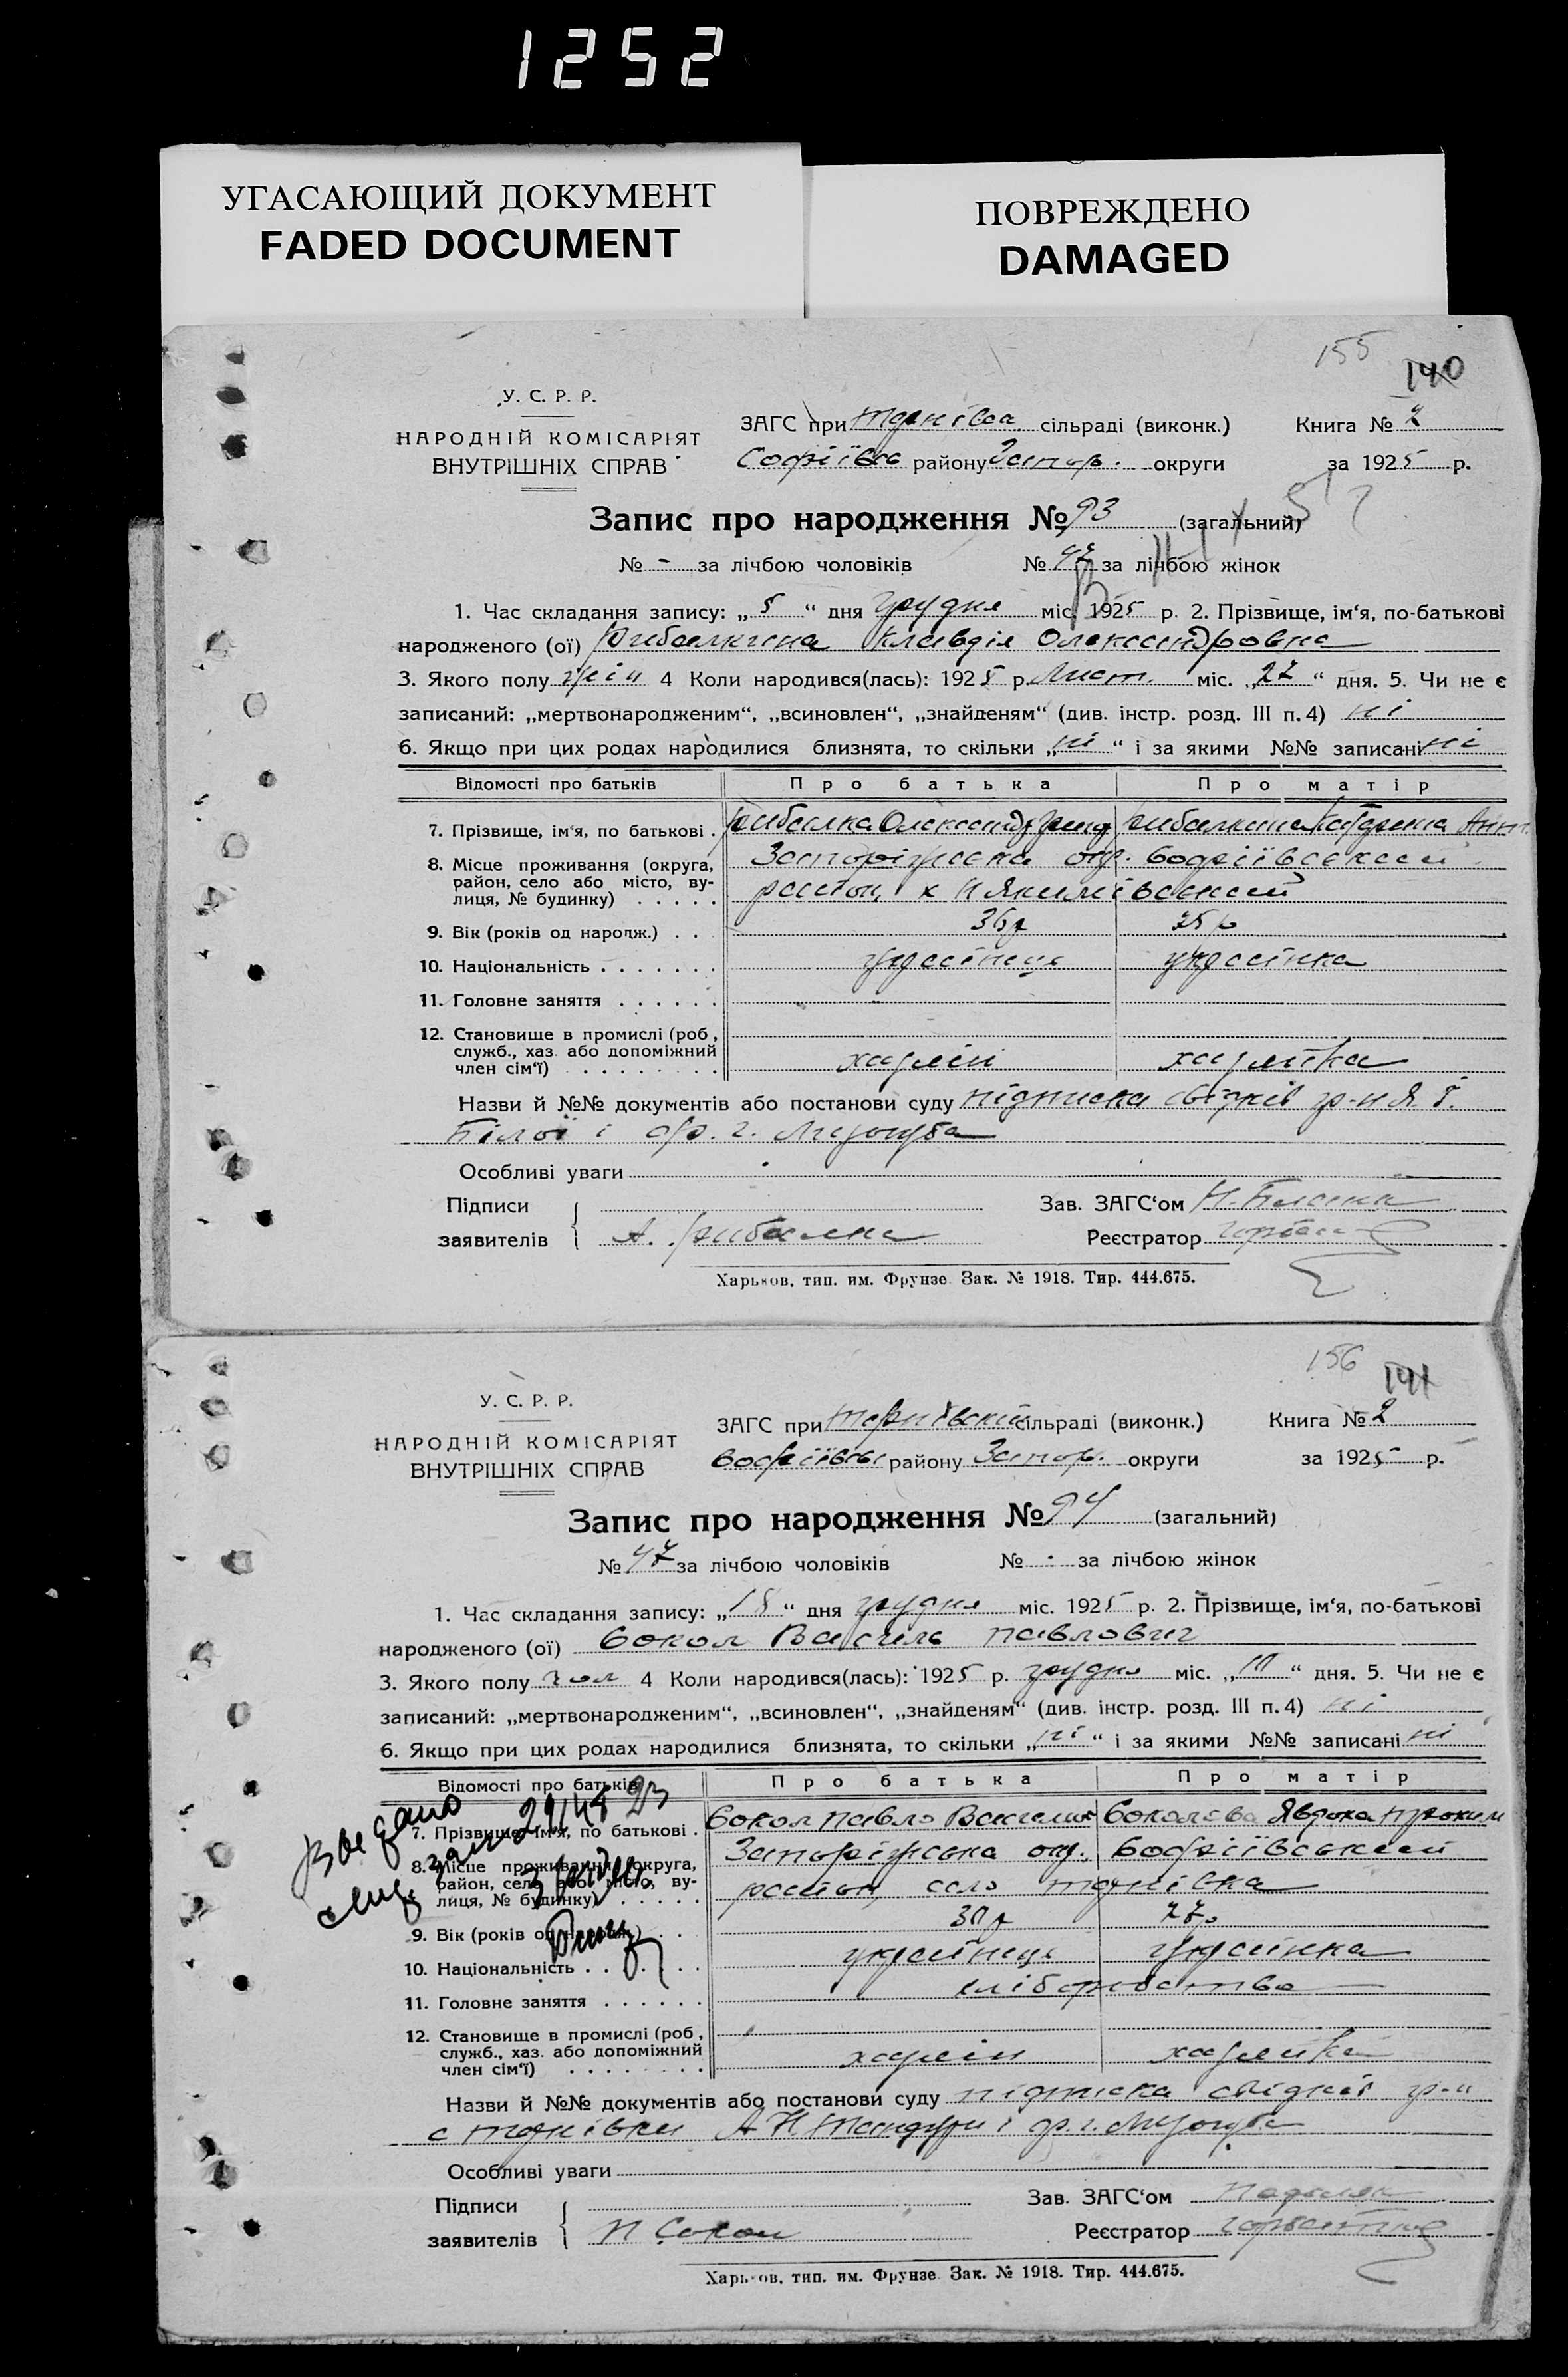 1252
УГАСАЮЩИЙ ДОКУМЕНТ
FADED DOCUMENT
ПОВРЕЖДЕНО
DAMAGED
155
140
У. С. Р. Р.
НАРОДНІЙ КОМІСАРІЯТ
ВНУТРІШНІХ СПРАВ
ЗАГС при сільраді (виконк.) Книга № 2
Софіївсь району Запор. округи за 1925 р.
Запис про народження № 93 (загальний)
№ - за лічбою чоловіків № 47 за лічбою жінок
1. Час складання запису: „ 5 “ дня грудня міс. 1925 р. 2. Прізвище, ім‘я, по-батькові
народженого (ої) Рибалкина Клавдія Олександровна
3. Якого полу жін 4 Коли народився(лась): 1925 р. Лист. міс. „ 27 “ дня. 5. Чи не є
записаний: „мертвонародженим“, „всиновлен“, „знайденям“ (див. інстр. розд. III п. 4) ні
6. Якщо при цих родах народилися близнята, то скільки „ ні “ і за якими №№ записані ні
Відомості про батьків Про батька Про матір
7. Прізвище, ім‘я, по батькові . Рибалка Олександр Рибалкина Катерина
8. Місце проживання (округа, Запоріжська окр. Софіївський
район, село або місто, ву-
лиця, № будинку) . . . . . район, х
9. Вік (років од народж.) . . 36 р 25 р
10. Національність . . . . . . . українець українка
11. Головне заняття . . . . . .
12. Становище в промислі (роб ,
служб., хаз. або допоміжний
член сім‘ї) . . . . . . . . хазяїн хазяйка
Назви й №№ документів або постанови суду підписка свідків гр-н
Білої і
Особливі уваги
Підписи Зав. ЗАГС‘ом
заявителів А. Рибалка Реєстратор
Харьков, тип. им. Фрунзе. Зак. № 1918. Тир. 444.675.
156
141
У. С. Р. Р.
НАРОДНІЙ КОМІСАРІЯТ
ВНУТРІШНІХ СПРАВ
ЗАГС при Тернівській сільраді (виконк.) Книга № 2
Софіївсь району Запор. округи за 1925 р.
Запис про народження № 94 (загальний)
№ 47 за лічбою чоловіків № - за лічбою жінок
1. Час складання запису: „ 18 “ дня грудня міс. 1925 р. 2. Прізвище, ім‘я, по-батькові
народженого (ої) Сокол Василь Павлович
3. Якого полу чол 4 Коли народився(лась): 1925 р. грудня міс. „ “ дня. 5. Чи не є
записаний: „мертвонародженим“, „всиновлен“, „знайденям“ (див. інстр. розд. III п. 4) ні
6. Якщо при цих родах народилися близнята, то скільки „ ні “ і за якими №№ записані ні
Відомості про батьків Про батька Про матір
7. Прізвище, ім‘я, по батькові . Сокол Павло Соколова Явдоха
8. Місце проживання (округа, Запоріжська окр. Софіївський
район, село або місто, ву-
лиця, № будинку) . . . . . район, село Тернівка
9. Вік (років од народж.) . . 27 р
10. Національність . . . . . . . українець українка
11. Головне заняття . . . . . . хліборобство
12. Становище в промислі (роб ,
служб., хаз. або допоміжний
член сім‘ї) . . . . . . . . хазяїн хазяйка
Назви й №№ документів або постанови суду підписка свідків гр-н
с Тернівки
Особливі уваги
Підписи Зав. ЗАГС‘ом
заявителів П Сокол Реєстратор
Харьков, тип. им. Фрунзе. Зак. № 1918. Тир. 444.675.